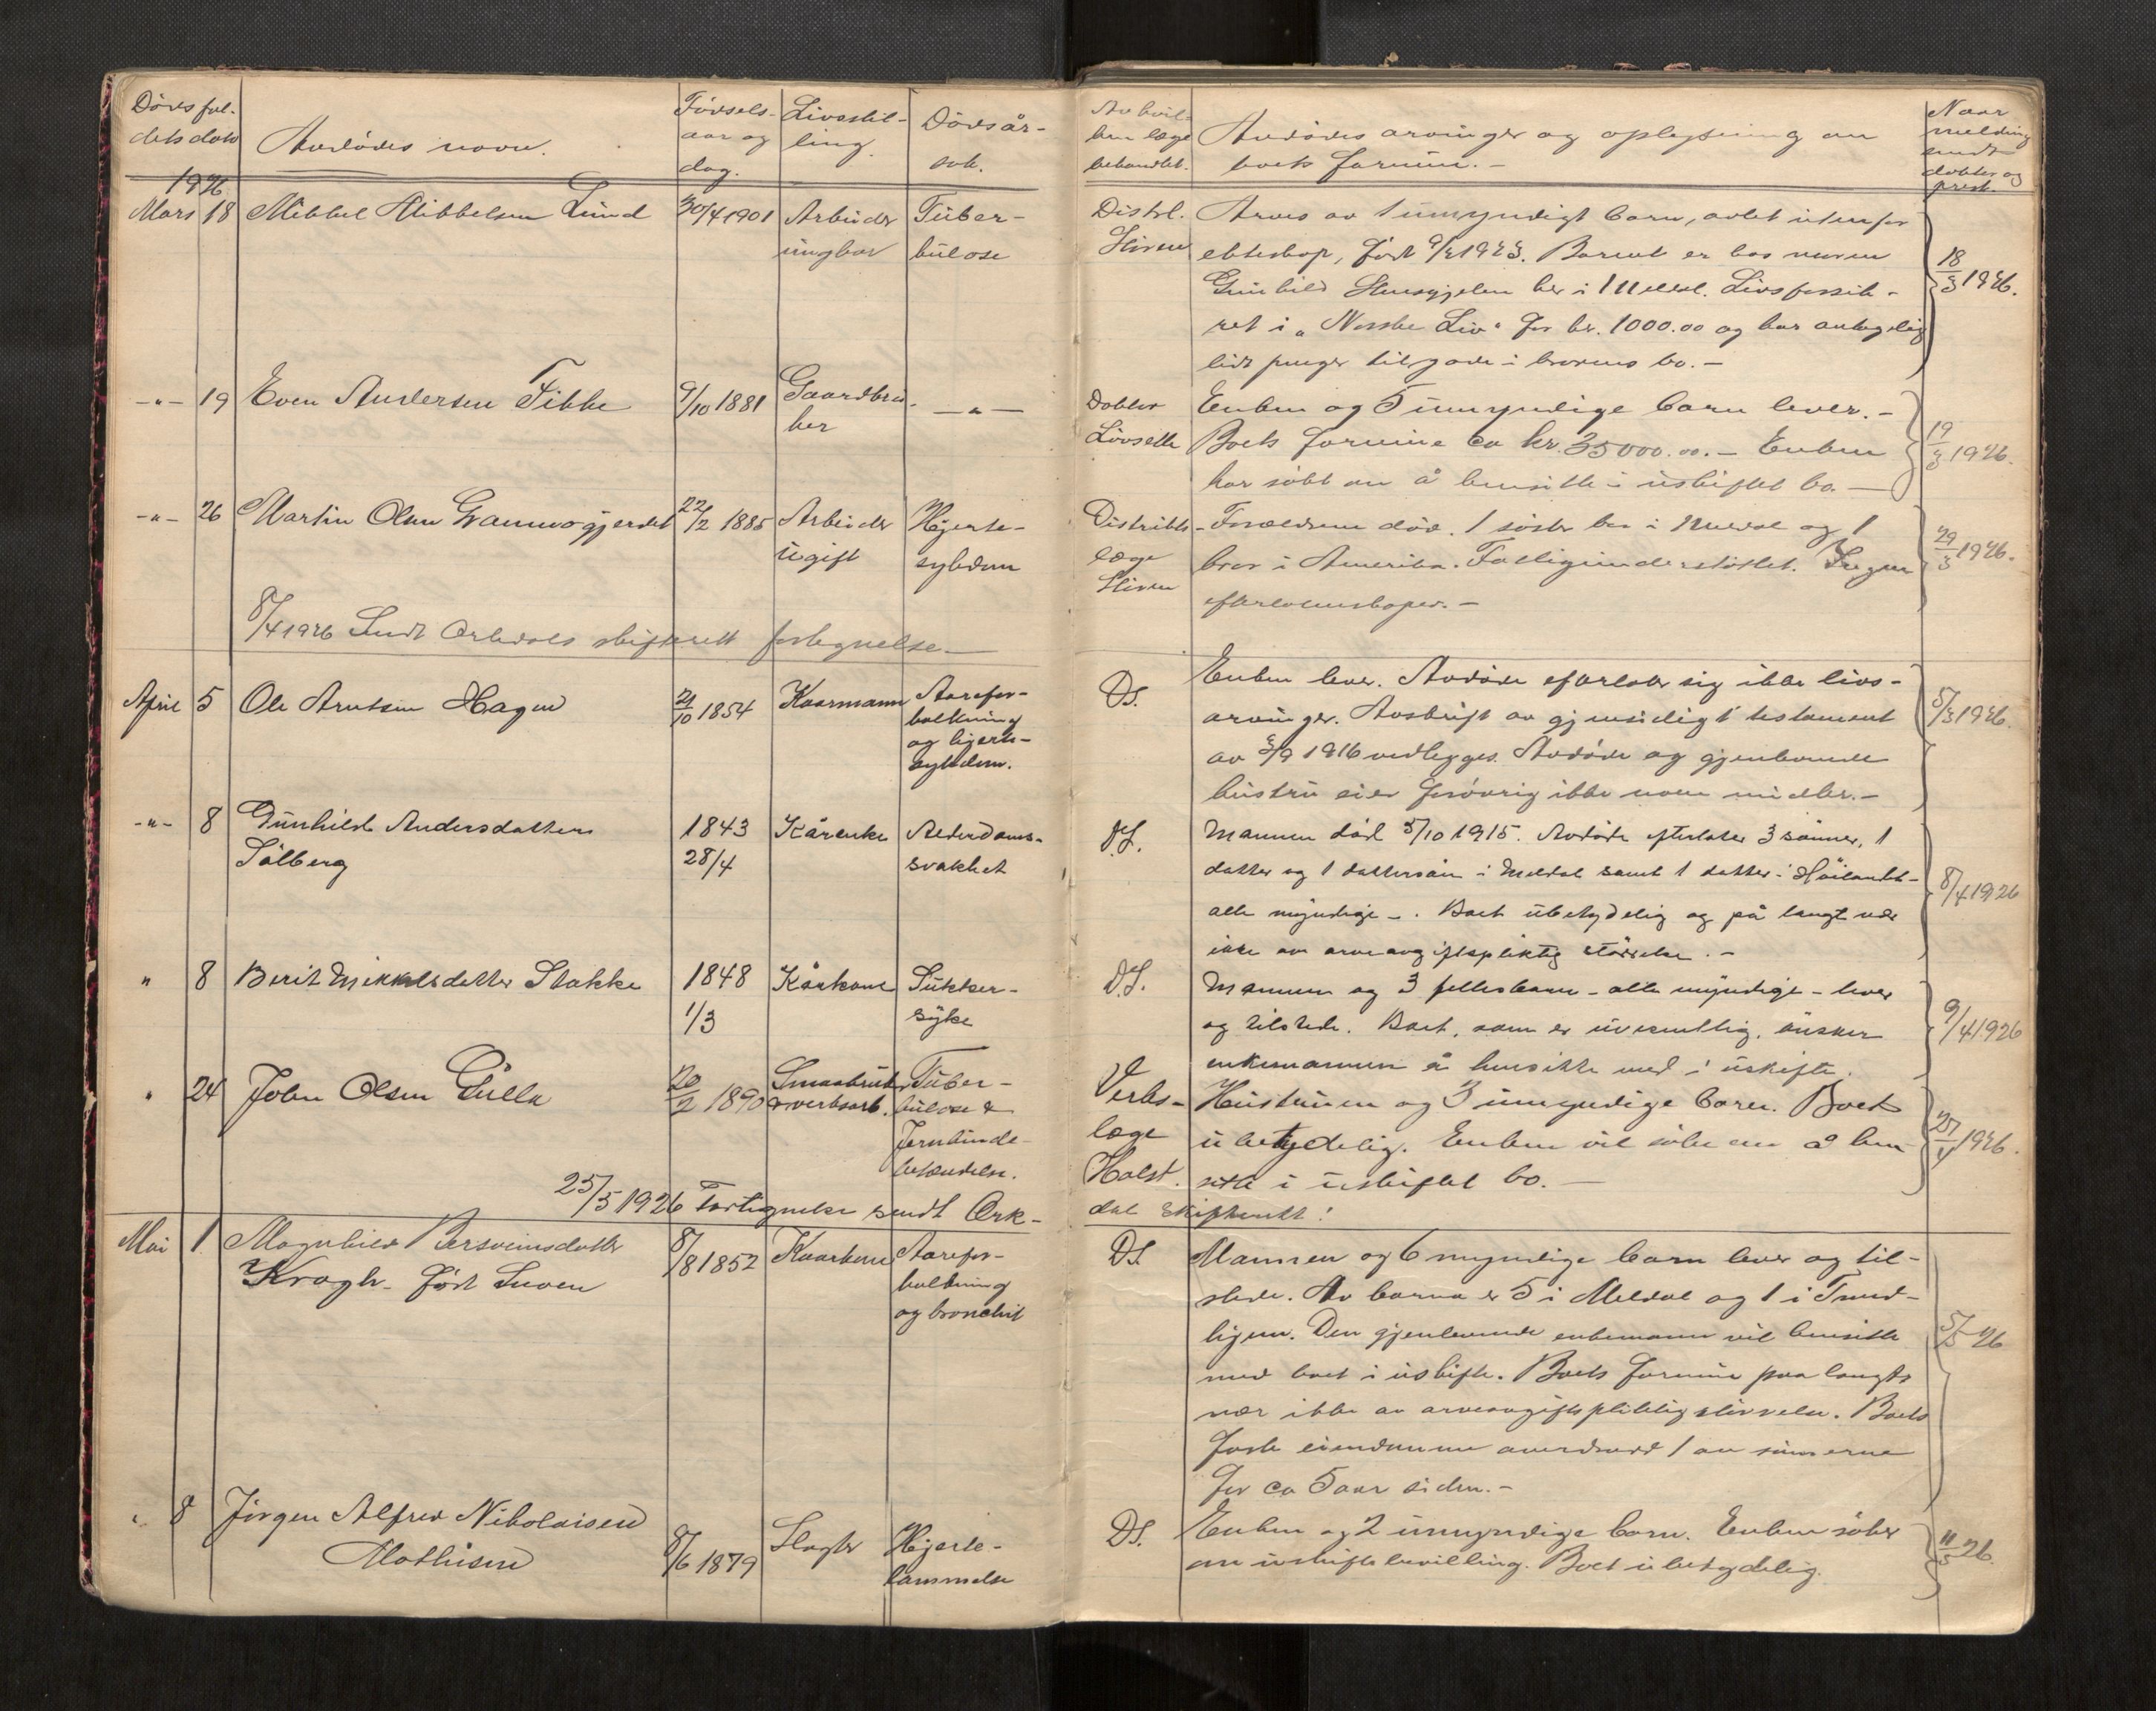 Dödsfal-
dets dato
Avdödes navn.
Födsels-
aar og
dag.
Livsstil-
ling.
Dödsår-
sak.
Av hvil-
ken læge
behandlet.
Avdödes arvinger og oplysning om
boets formue.-
Naar
melding
sendt
dokter og
prest.
1926
Mars 18 Mikkel Mikkelsen Lund 30/4 1901 Arbeider Tuber-
ungkar kulose
Distrl. Arves av 1 umyndigt barn, avlet utenfor
ekteskap, født 9/2 1923. Barnet er hos moren
Gunhild her i Meldal. Livsforsik-
ret i "Norske Liv" for kr. 1000.00 og har antagelig
lidt penger tilgode i brorens bo.-
18/3 1926.
-"- 19 Even Andersen Fikke 9/10 1881 Gaardbru- -"-
ker
Dokter Enken og 5 umyndige barn lever.-
Lövseth Boets formue ca kr. 35000.00.- Enken
har søkt om å hensitte i uskiftet bo.-
19/3 1926.
-"- 26 Martin Olsen Gramvogjerdet 22/2 1885 Arbeider Hjerte-
ugift sykdom
Distrikts- Foreldrene død. 1 søster bor i Meldal og 1
læge bror i Amerika. Fattigunderstöttet. Ingen
efterlatenskaper.-
29/3 1926.
8/4 1926 Sendt Orkdals skifterett fortegnelse.-
April 5 Ole Arntsen Hagen 21/10 1854 Kaarmann Aarefor-
kalkning
og hjerte-
sykdom.
DS. Enken lever. Avdöde efterlater sig ikke livs-
arvinger. Avskrift av gjensidigt testament
av 3/9 1916 vedlegges. Avdöde og gjenlevende
hustru eier forövrig ikke noen midler.-
5/3 1926.
-"- 8 Gunhild Andersdatter 1843 Kårenke Alderdoms-
Sölberg 28/4 svakhet
D.S. Mannen död 5/10 1915. Avdöde efterlater 3 sönner, 1
datter og 1 dattersön i Meldal samt 1 datter i Höilandet-
alle myndige-. Boet ubetydelig og på langt nær
ikke av arveavgiftspliktig störrelse.-
8/4 1926
" 8 Berit Mikkelsdatter Stokke 1848 Kårkone Sukker-
1/3 syke
D.S. Mannen og 3 fellesbarn - alle myndige - lever
og tilstede. Boet, som er uvesentlig, önsker
enkemannen å hensitte med i uskifte.
9/4 1926
" 24 John Olsen Gulla 20/2 1890 Smaabruker Tuber-
& verksarb. kulose &
Hjernehinde-
betændelse.
Verks- Hustruen og 3 umyndige barn. Boet
læge ubetydelig. Enken vil söke om å hen-
Holst. sitte i uskiftet bo.-
1926.
25/5 1926 Fortegnelse sendt Ork-
dal skifterett!
Mai 1. Magnhild Bersveinsdatter 8/8 1852 Kaarkone Aarefor-
Kragh- född Snoen kalkning
og bronchit
DS. Mannen og 6 myndige barn lever og til-
stede. Av barna er 5 i Meldal og 1 i Trond-
hjem. Den gjenlevende enkemann vil hensitte
med boet i uskifte. Boets formue paa langt
nær ikke av arveavgiftspliktig störrelse. Boets
faste eiendomme overdradd 1 av sönnerne
for ca 5 aar siden.-
5/5 26
" 8 Jörgen Alfred Nikolaisen
Mathisen 8/6 1879 Slagter Hjerte-
lammelse
DS. Enken og 2 umyndige barn. Enken söker
om uskiftebevilling. Boet ubetydelig.
11/5 26.